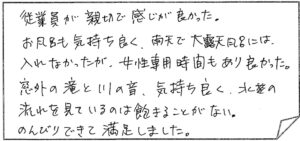 従業員が親切で感じが良かった。
お風呂も気持ち良く、雨天で大露天風呂には、
入れなかったが、女性専用時間もあり良かった。
窓外の滝と川の音、気持ち良く、水の
流れを見ているのは飽きることがない。
のんびりできて満足しました。